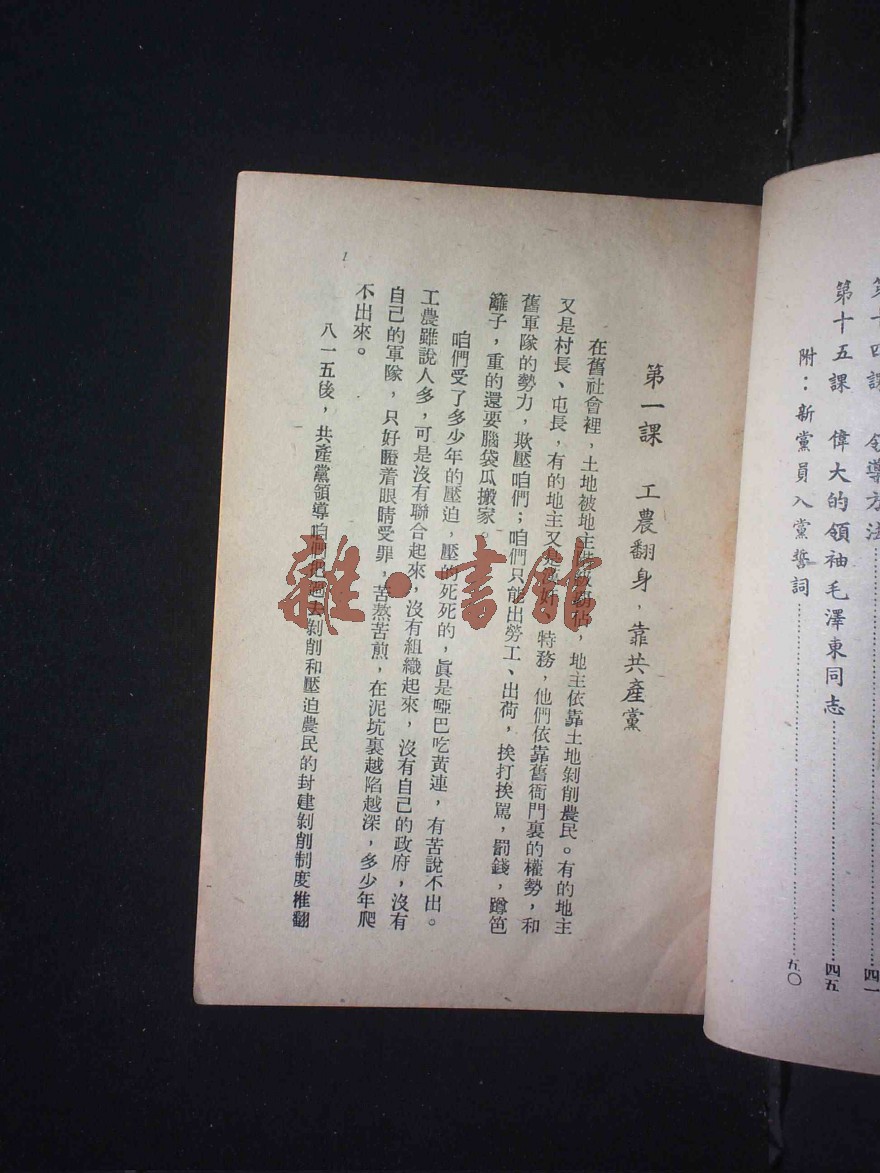 第十四課 領導方法
四一
第十五課 偉大的領袖毛澤東同志
四五
附：新黨員入黨誓詞
五〇
第一課 工農翻身，靠共產黨
在舊社會裡，土地被地主，地主依靠土地剝削農民。有的地主
又是村長、屯長，有的地主又是特務，他們依靠舊衙門裏的權勢，和
舊軍隊的勢力，欺壓咱們；咱們只能出勞工、出荷，挨打挨駡，罰錢，蹲笆
籬子，重的還要腦袋瓜搬家。
咱們受了多少年的壓迫，壓的死死的，眞是啞巴吃黃連，有苦說不出。
工農雖說人多，可是沒有聯合起來，沒有組織起來，沒有自己的政府，沒有
自己的軍隊，只好瞪着眼睛受罪，苦熬苦煎，在泥坑裏越陷越深，多少年爬
不出來。
八一五後，共產黨領導咱們把過去剝削和壓迫農民的封建剝削制度推翻
1
雜·書館